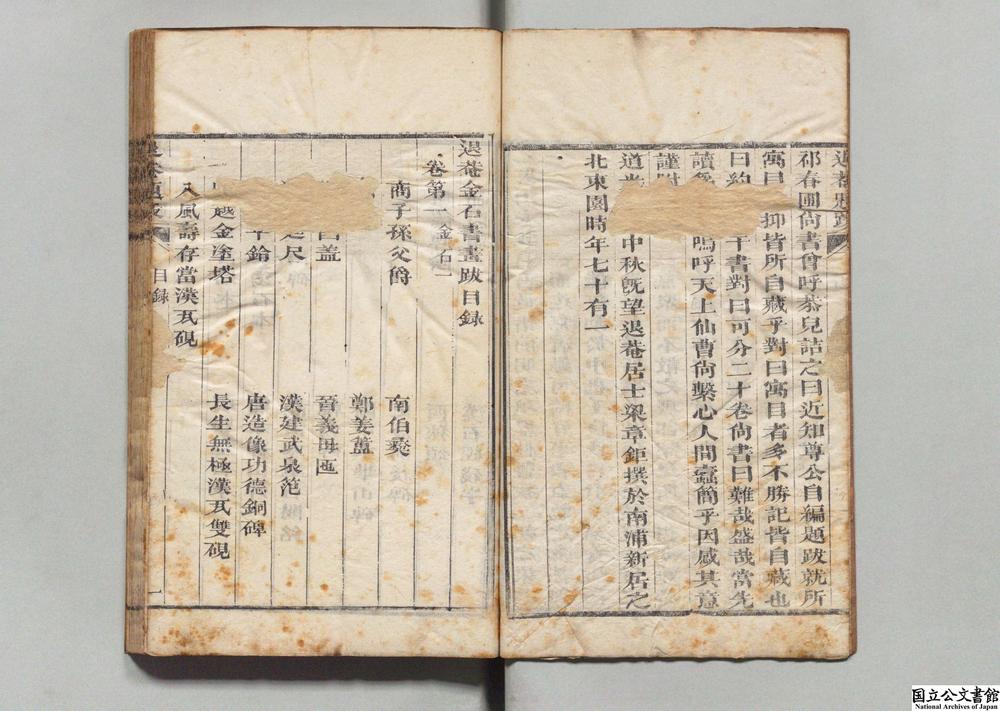 祁春圃尚書曾呼恭兒詰之曰近知尊公自編題跋就所
寓目 抑皆所自藏乎對曰寓目者多不勝記皆自藏也
曰約 干書對曰可分二十卷尚書曰難哉盛哉當先
讀爲 嗚呼天上仙曹尙繫心人間蠹簡乎因感其意
謹附
道光 中秋既望退菴居士梁章鉅撰於南浦新居之
北東園時年七十有一
退菴金石書畫跋目錄
卷第一 金石一
商子孫父爵 南伯彝
鄭姜簠
蓋 晉義母匜
尺 漢建武泉范
鎗 唐造像功德銅碑
越金塗塔 長生無極漢瓦雙硯
八風壽存當漢瓦硯
目錄
一
国立公文書館
National Archives of Japan